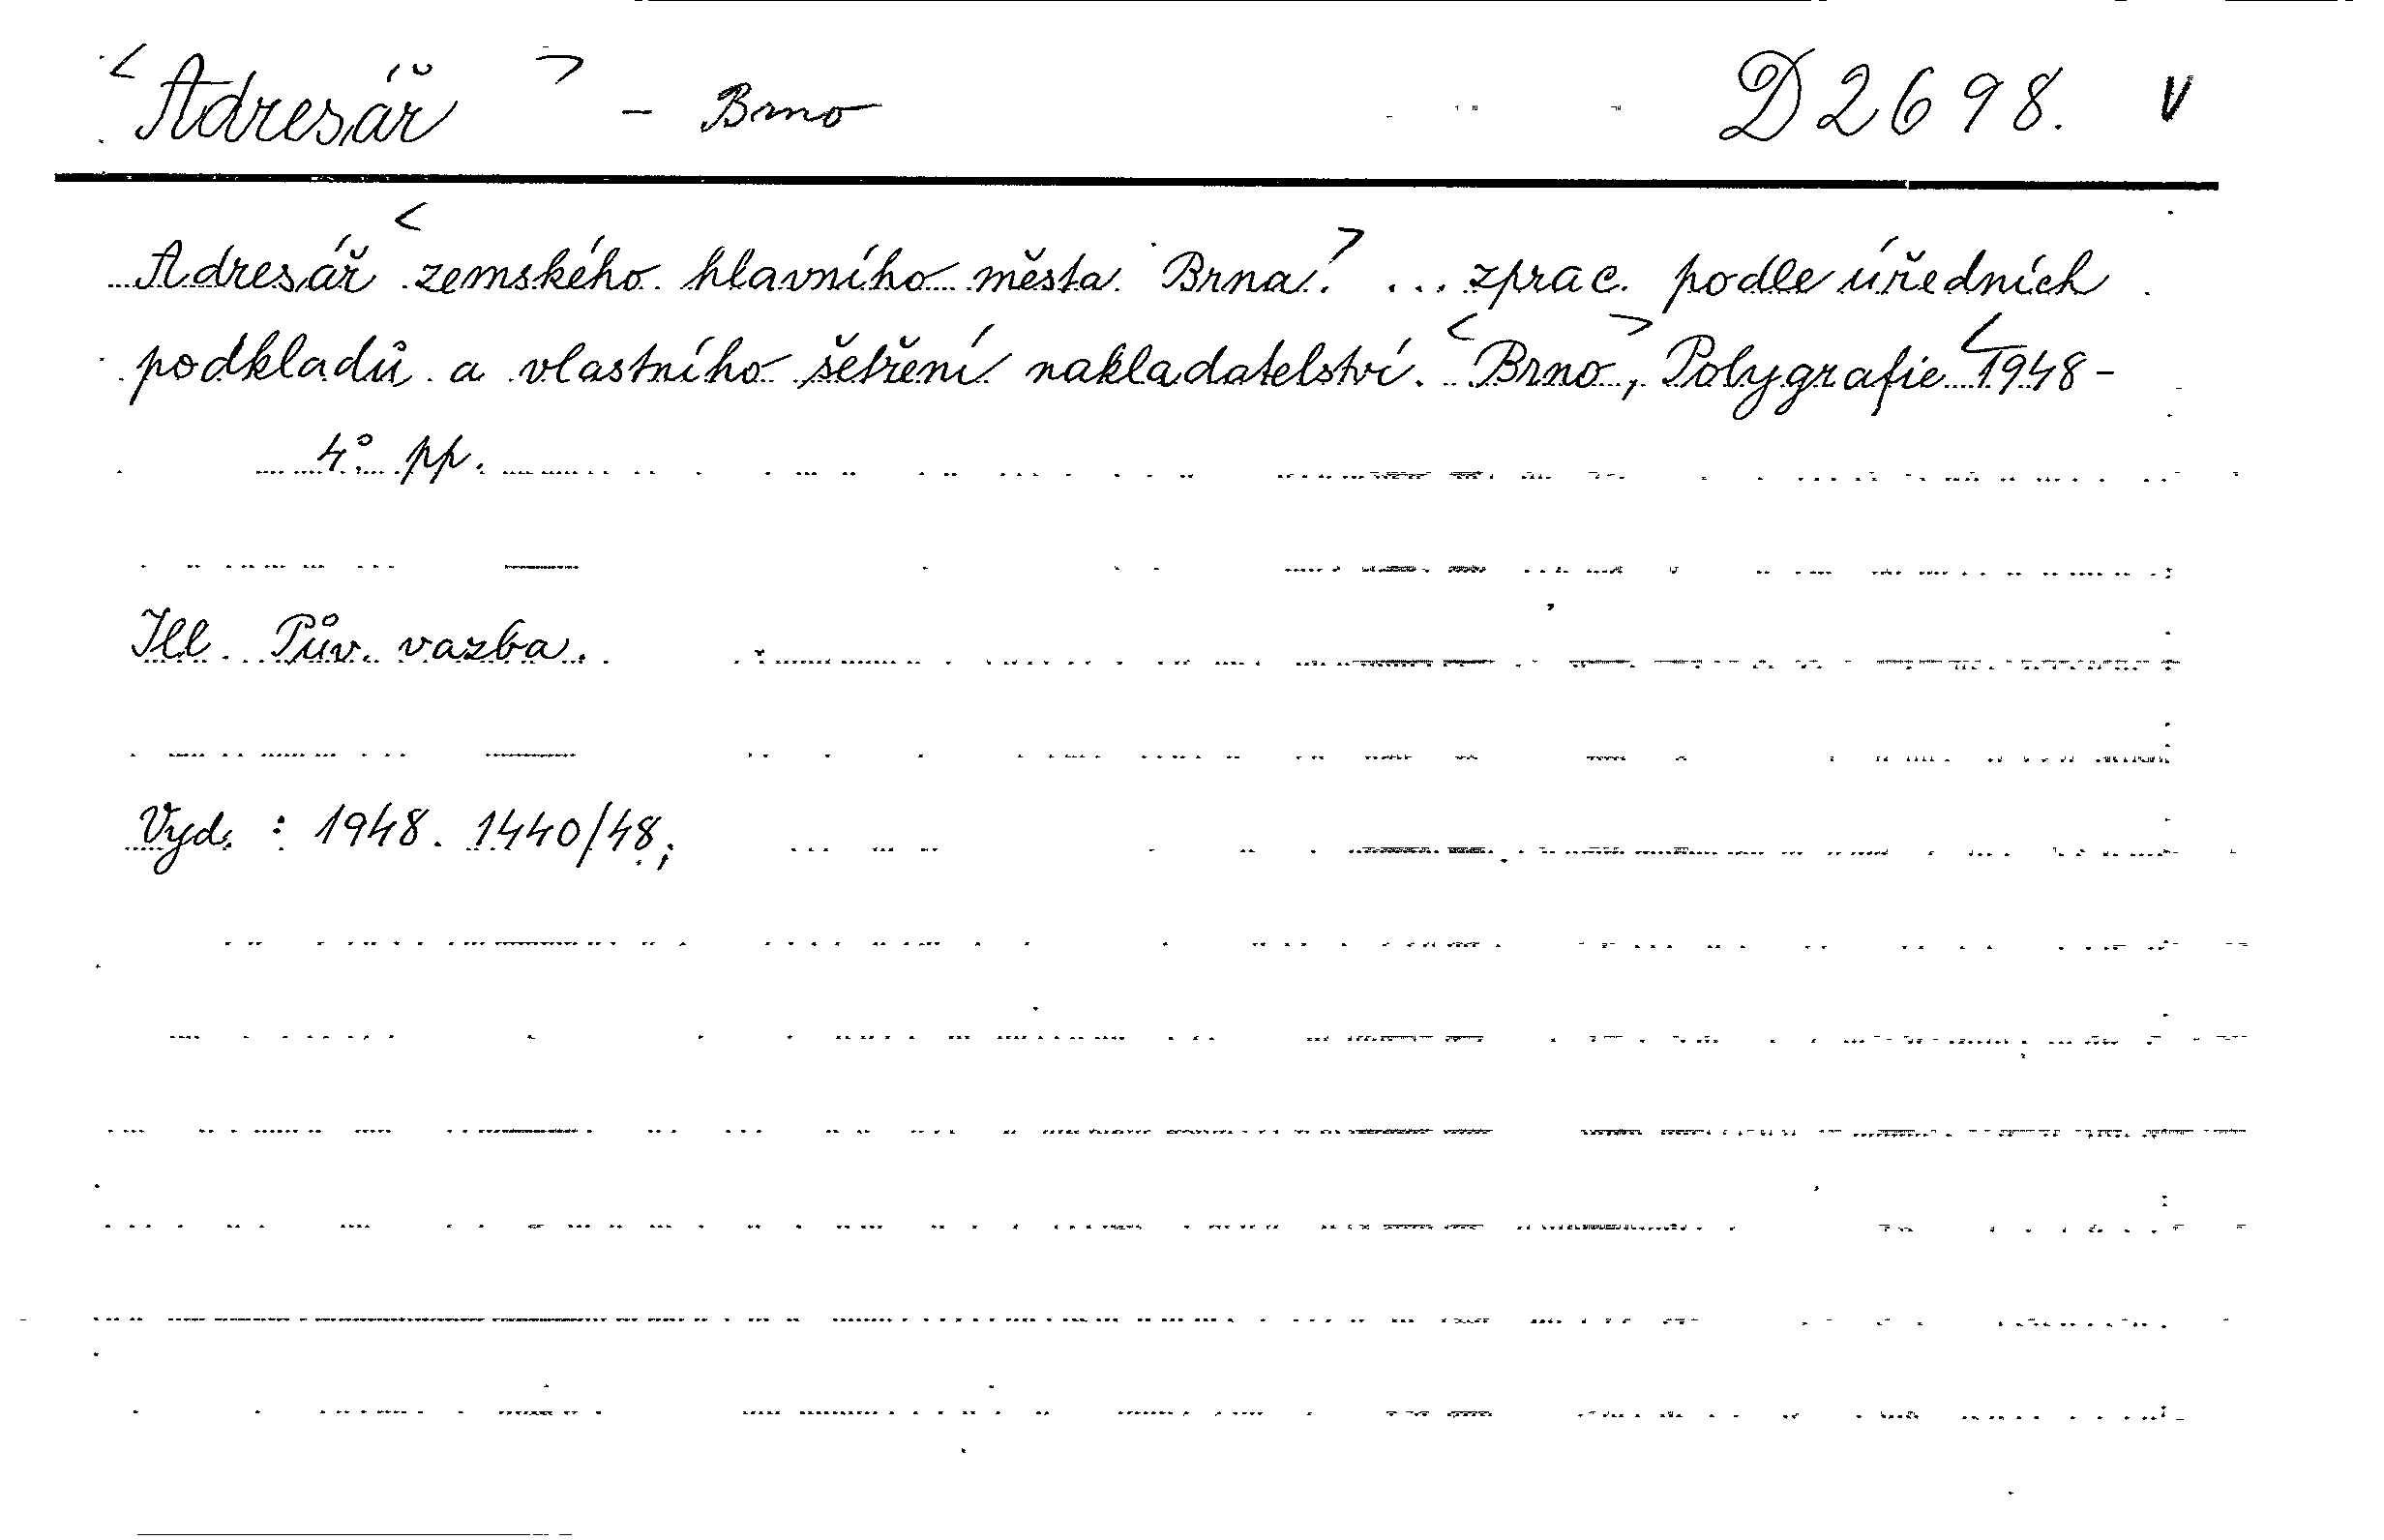 <Adresář> - Brno D 2698. V
Adresář <zemského hlavního města Brna.> ... zprac. podle úředních
podkladů a vlastního šetření nakladatelství. <Brno>, Polygrafie <1948-
4° pp.
Ill. Pův. vazba.
Vyd. : 1948. 1440/48;